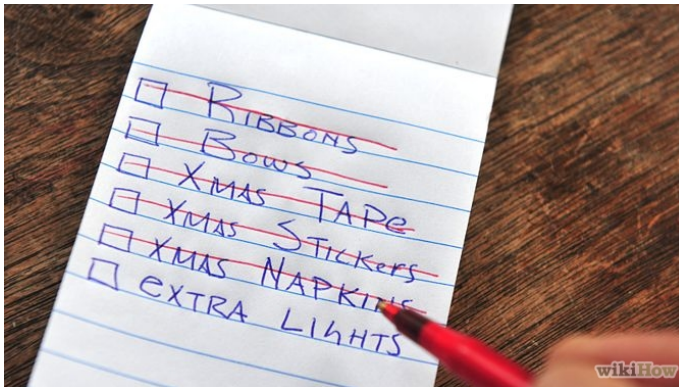 RIBBONS
BOWS
XMAS TAPe
XMAS STICKerS
XMAS NAPKINS
eXTRA LIGHTS
wikiHow